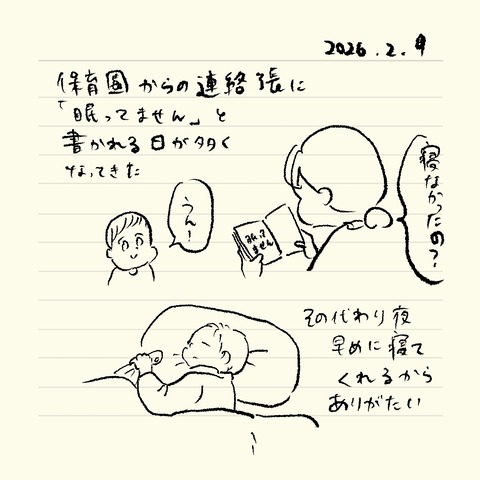 2026.2.9
保育園からの連絡張に
「眠ってません」と
書かれる日が多く
なってきた
寝なかったの?
うん!
ねって
ません
その代わり夜
早めに寝て
くれるから
ありがたい